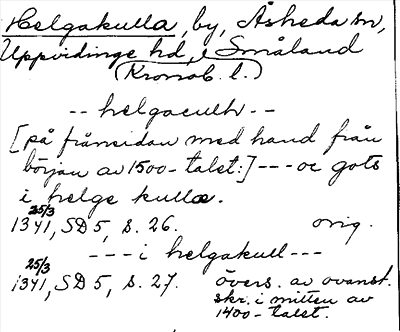 Helgakulla, by, Åsheda sn,
Uppvidinge hd, Småland
(Kronob. l.)
-- helgaculh --
[på frånsidan med hand från
början av 1500-talet:] --- oc gots
i helge kullæ.
25/3
1341, SD 5, s. 26. orig.
--- i helgakull ---
25/3
1341, SD 5, s. 27. övers. av ovanst.
skr. i mitten av
1400-talet.